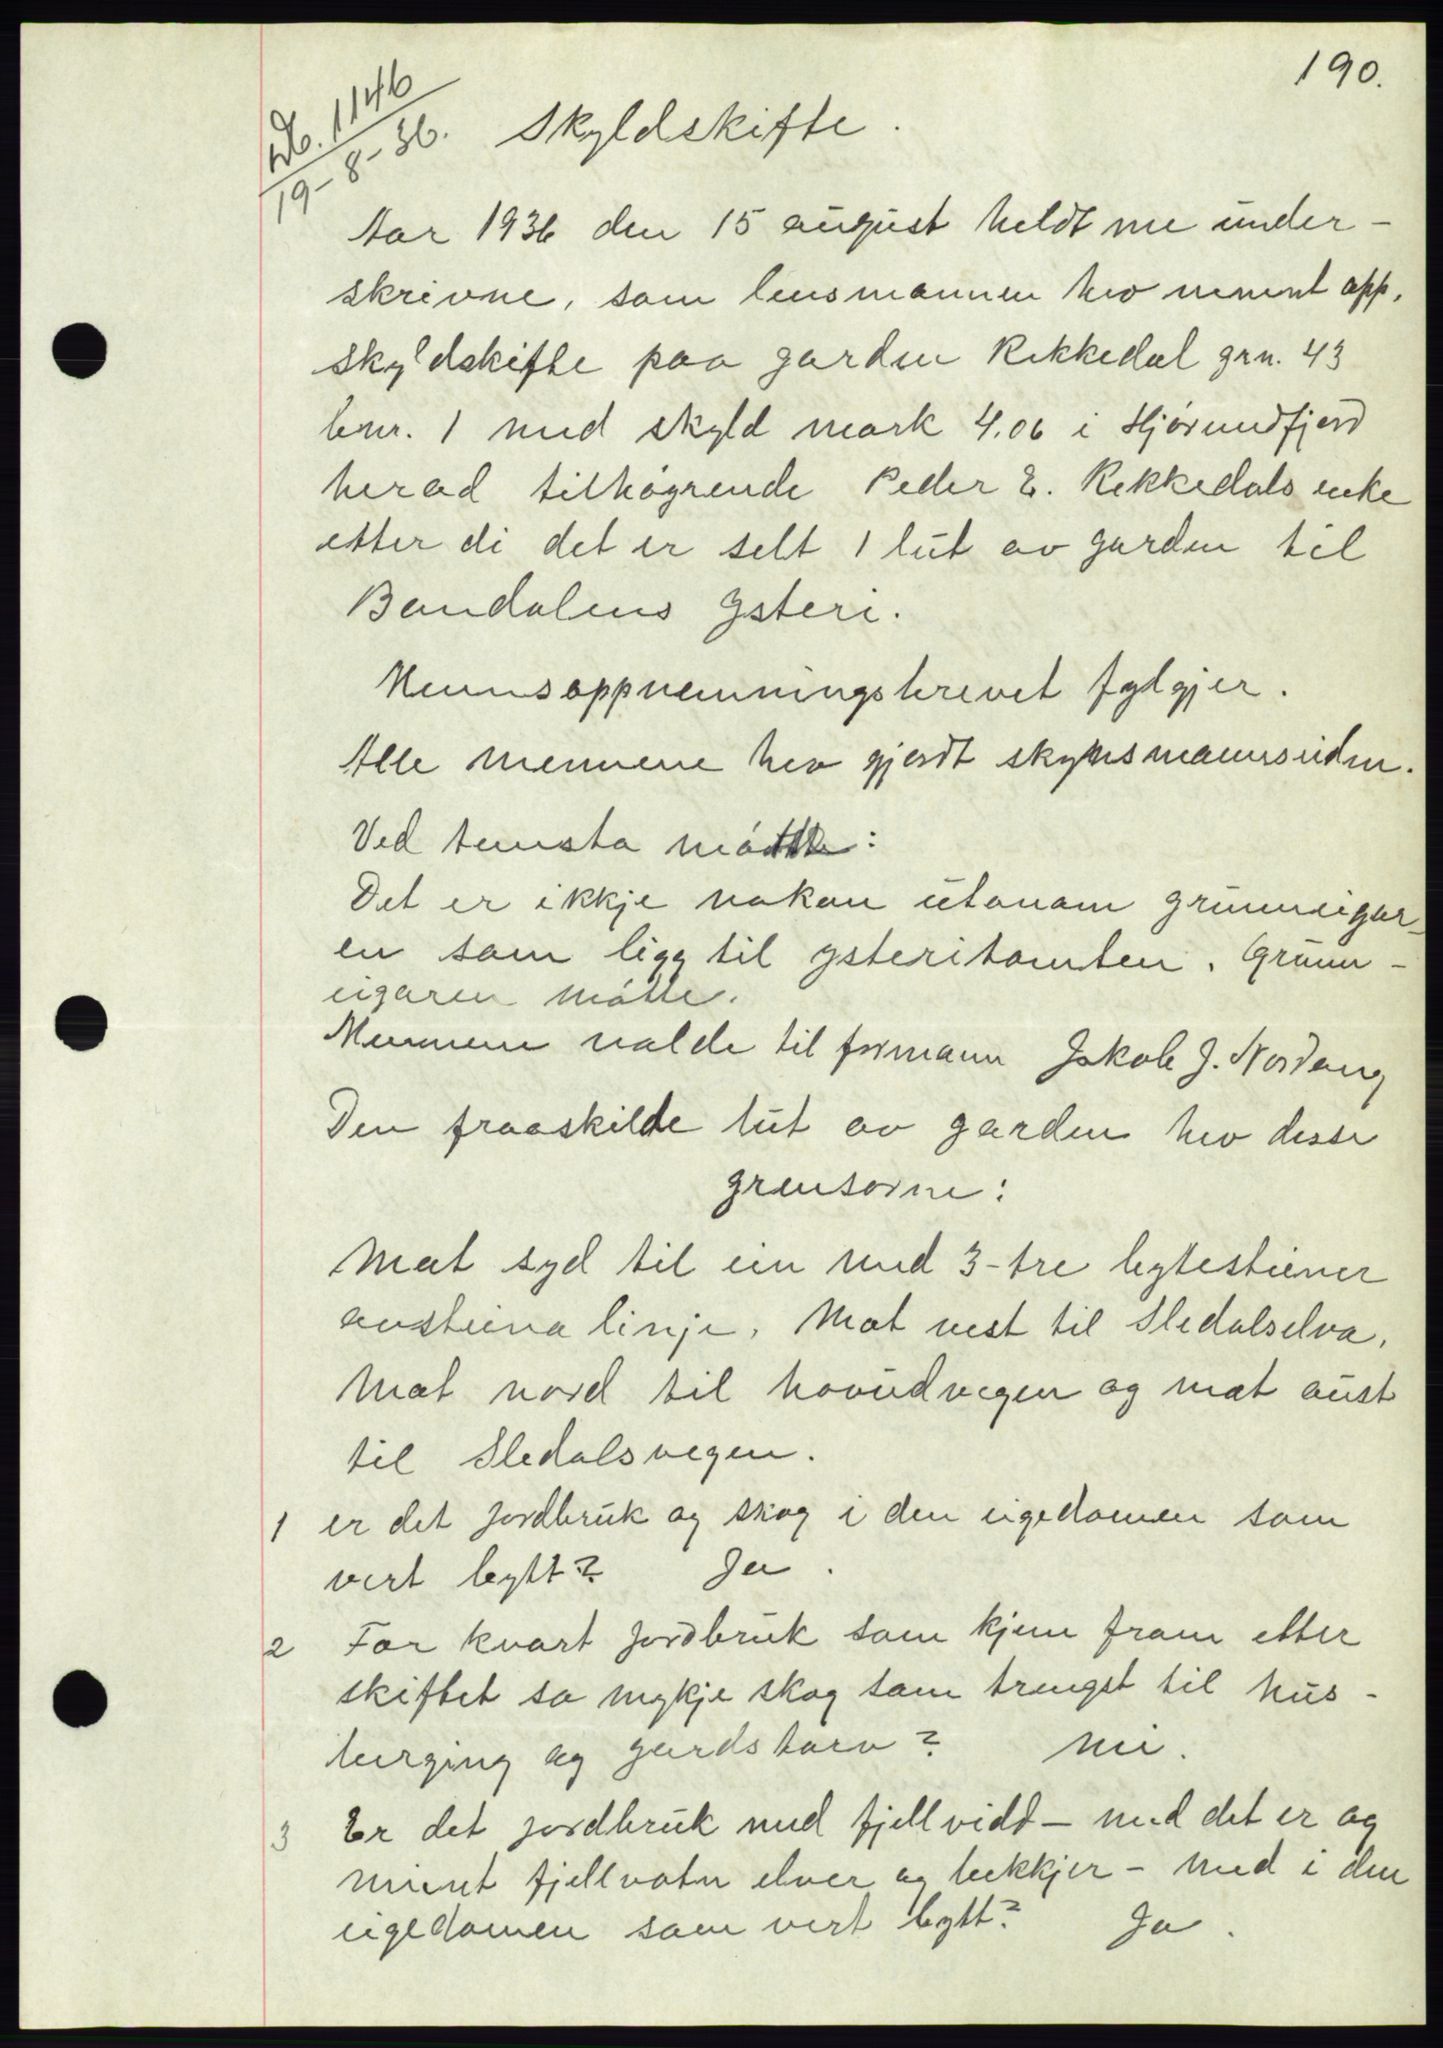 190.
Db. 1146
19-8-36.
Skyldskifte.
Aar 1936 den 15 august heldt me under-
skrivne, som lensmannen hev nemnt opp,
skyldskifte paa garden Rekkedal grn. 43
bnr. 1 med skyld mark 4.06 i Hjørundfjord
herad tilhøyrende Peder E. Rekkedals enke
etter di det er selt 1 lut av garden til
Bondalens Ysteri.
Mennsoppnemningsbrevet fylgjer.
Alle mennene hev gjordt skynsmannseiden.
Ved tennsta møtte:
Det er ikkje nokon utanom grunneigar-
en som ligg til ysteritomten. Grunn-
eigaren møtte.
Mennene valde til formann Jakob J. Nordang
Den fraaskilde lut av garden hev desse
grensorne:
Mot syd til ein med 3-tre bytesteiner
avsteina linje. Mot vest til Sledalselva.
Mot nord til hovudvegen og mot aust
til Sledalsvegen.
1 er det jordbruk og skog i den eigedomen som
vert bytt? Ja.
2 Før kvart jordbruk som kjem fram etter
skiftet so mykje skog som trengst til hus-
berging og gards torv? nei.
3 Er det jordbruk med fjellvidd – med det er og
meint fjellvotn elver og bekkjer – med i den
eigedomen som vert bytt? Ja.